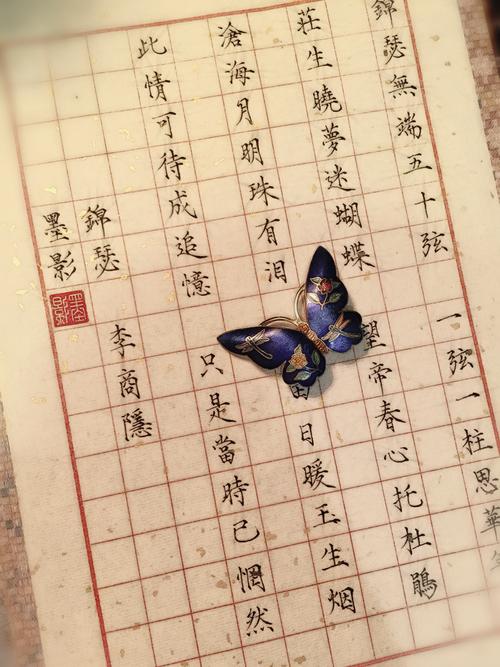 錦瑟無端五十弦 一弦一柱思華
莊生曉夢迷蝴蝶 望帝春心托杜鵑
滄海月明珠有泪 田日暖玉生烟
此情可待成追憶 只是當時已惘然
錦瑟 李商隱
墨影
墨影